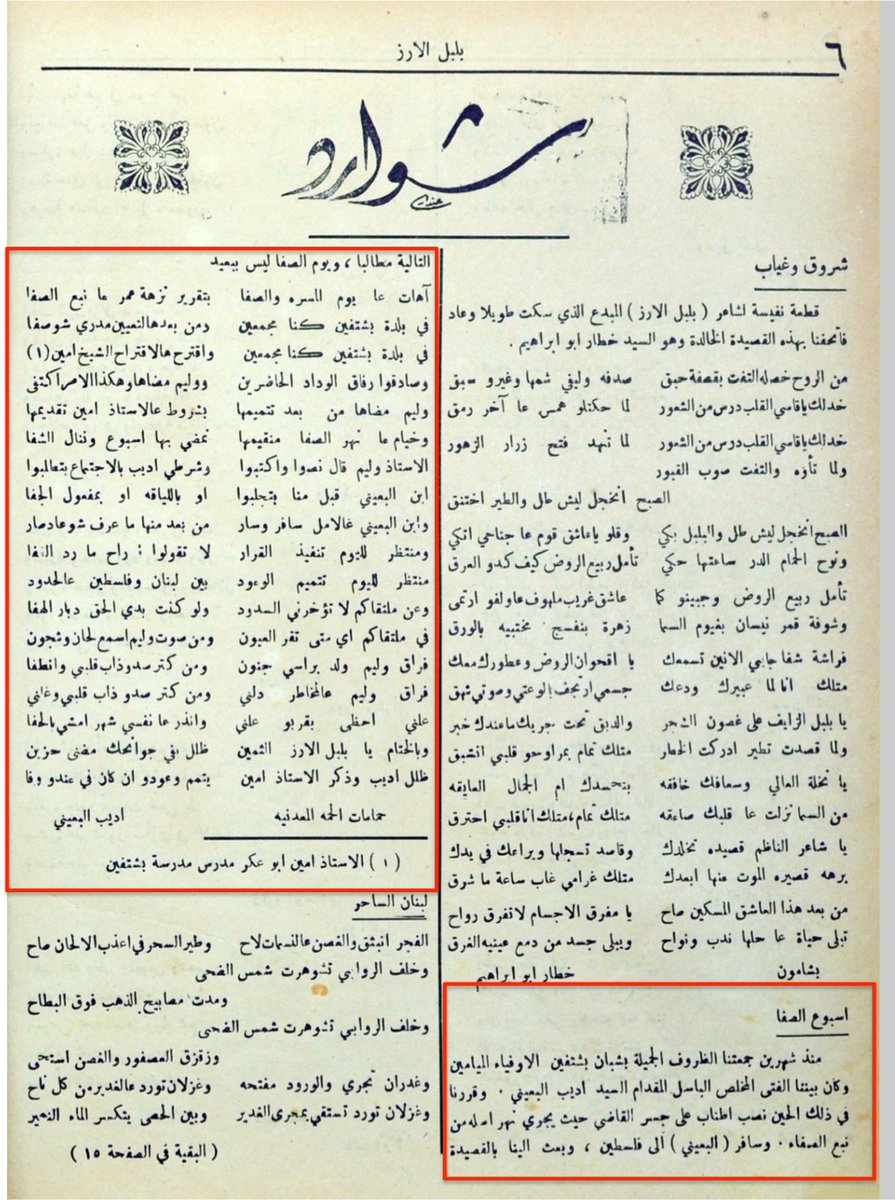 ٦
بلبل الارز
شوارد
شروق وغياب
قطعة نفيسة لشاعر ( بلبل الارز ) المبدع الذي سكت طويلا وعاد
فاتحفنا بهذه القصيدة الخالدة وهو السيد خطار ابو ابراهيم .
من الروح خصله التفت بقصفة حبق صدفه وليفي شمها وغيرو سبق
خدلك ياقاسي القلب درس من الشعور لما حكتلو همس عا آخر رمق
خدلك ياقاسي القلب درس من الشعور لما تنهد فتح زرار الزهور
ولما تأوه والتفت صوب القبور
الصبح انخجل ليش طل والطير اختنق
الصبح انخجل ليش طل والبلبل بكي وقلو ياعاشق قوم عا جناحي اتكي
ونوح الحمام الدر ساعتها حكي تأمل ربيع الروض كيف كدو العرق
تأمل ربيع الروض وجبينو كما عاشق غريب ملهوف عاولفو ارتمى
وشوفة قمر نيسان بغيوم السما زهرة بنفسج مختبيه بالورق
فراشة شفا جابي الانين تسمعك يا اقحوان الروض وعطورك معك
متلك انا لما عبيرك ودعك جسمي ارتجف بالوعتي وصوتي شهق
يا بلبل الزايف على غصون الشجر والدبق تحت جريك ماعندك خبر
ولما قصدت تطير ادركت الخطر متلك تمام بمراوحو قلبي انشبق
يا نخلة العالي وسعافك خافقه بتحسدك ام الجمال العايقه
من السما نزلت عا قلبك صاعقه متلك تمام، متلك انا قلبي احترق
يا شاعر الناظم قصيده تخلدك وقاصد تسجلها وبراعك في يدك
برهه قصيره الموت عنها ابعدك متلك غرامي غاب ساعة ما شرق
من بعد هذا العاشق المسكين صاح يا مفرق الاجسام لا تفرق رواح
تبلى حياة عا حلها ندب ونواح ويبلى جسد من دمع عينيه الغرق
بشامون خطار ابو ابراهيم
اسبوع الصفا
منذ شهرين جمعتنا الظروف الجميلة بشبان بشتفين الاوفياء الميامين
وكان بيننا الفتى المخلص الباسل المقدام السيد اديب البعيني . وقررنا
في ذلك الحين نصب اطناب على جسر القاضي حيث يجري نهر اصله من
نبع الصفاء . وسافر ( البعيني ) الى فلسطين ، وبعث الينا بالقصيدة
التالية مطالبا ، ويوم الصفا ليس ببعيد
آهات عا يوم المسره والصفا بتقرير نزهة عمر ما نبع الصفا
في بلدة بشتفين كنا مجمعين ومن بعدها النعيين مدري شو صفا
في بلدة بشتفين كنا مجمعين واقترح هالاقتراح الشيخ امين (١)
وصادقوا رفاق الوداد الحاضرين ووليم مضاها وهكذا الامر اكتفى
وليم مضاها من بعد تتميمها بشروط عا الاستاذ امين تقديمها
وخيام عا نهر الصفا منقيمها نمضي بها اسبوع وننال الشفا
الاستاذ وليم قال نصوا واكتبوا وشرطي اديب بالاجتماع بتعالبوا
ابن البعيني قبل منا يتجلبوا او باللياقه او بمفعول الجفا
وابن البعيني غالامل سافر وسار من بعد منها ما عرف شو عاد صار
ومنتظر لليوم تنفيذ القرار لا تقولوا : راح ما رد النفا
منتظر لليوم تتميم الوعود بين لبنان وفلسطين عالحدود
وعن ملتقاكم لا تؤخرني السدود ولو كنت بدي الحق ديار الهفا
في ملتقاكم اي متى تقر العيون ومن صوت وليم اسمع لحان وشجون
فراق وليم ولد براسي جنون ومن كتر صدو ذاب قلبي وانطفا
فراق وليم عالمخاطر دلني ومن كتر صدو ذاب قلبي وغاني
علني احظى بقربو علني وانذر عا نفسي شهر امشي بالحفا
وبالختام يا بلبل الارز الثمين ظلل بفي جوانحك مضنى حزين
ظلل اديب وذكر الاستاذ امين يتمم وعودو ان كان في عندو وفا
حمامات الحمه المعدنيه اديب البعيني
( ١ ) الاستاذ امين ابو عكر مدرس مدرسة بشتفين
لبنان الساحر
الفجر انبثق والغصن عالنسمات لاح وطير السحر في اعذب الالحان صاح
وخلف الروابي تشوهرت شمس الضحى
ومدت مصابيح الذهب فوق البطاح
وخلف الروابي تشوهرت شمس الضحى
وزقزق العصفور والغصن استحى
وغدران تجري والورود مفتحه وغزلان تورد عالغدير من كل ناح
وغزلان تورد تستقي بمجرى الغدير وبين الحصى يتكسر الماء النمير
( البقية في الصفحة ١٥ )